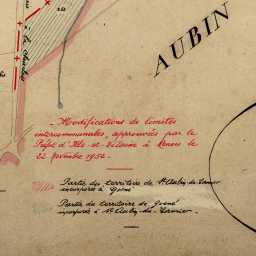 AUBIN
Modifications de limites
intercommunales, approuvées par le
Préfet d'Ille-et-Vilaine à Rennes le
22 Novembre 1952.
Partie du territoire de St Aubin-du-Cormier
incorporée à Gosné
Partie du territoire de Gosné
incorporée à St Aubin-du-Cormier.